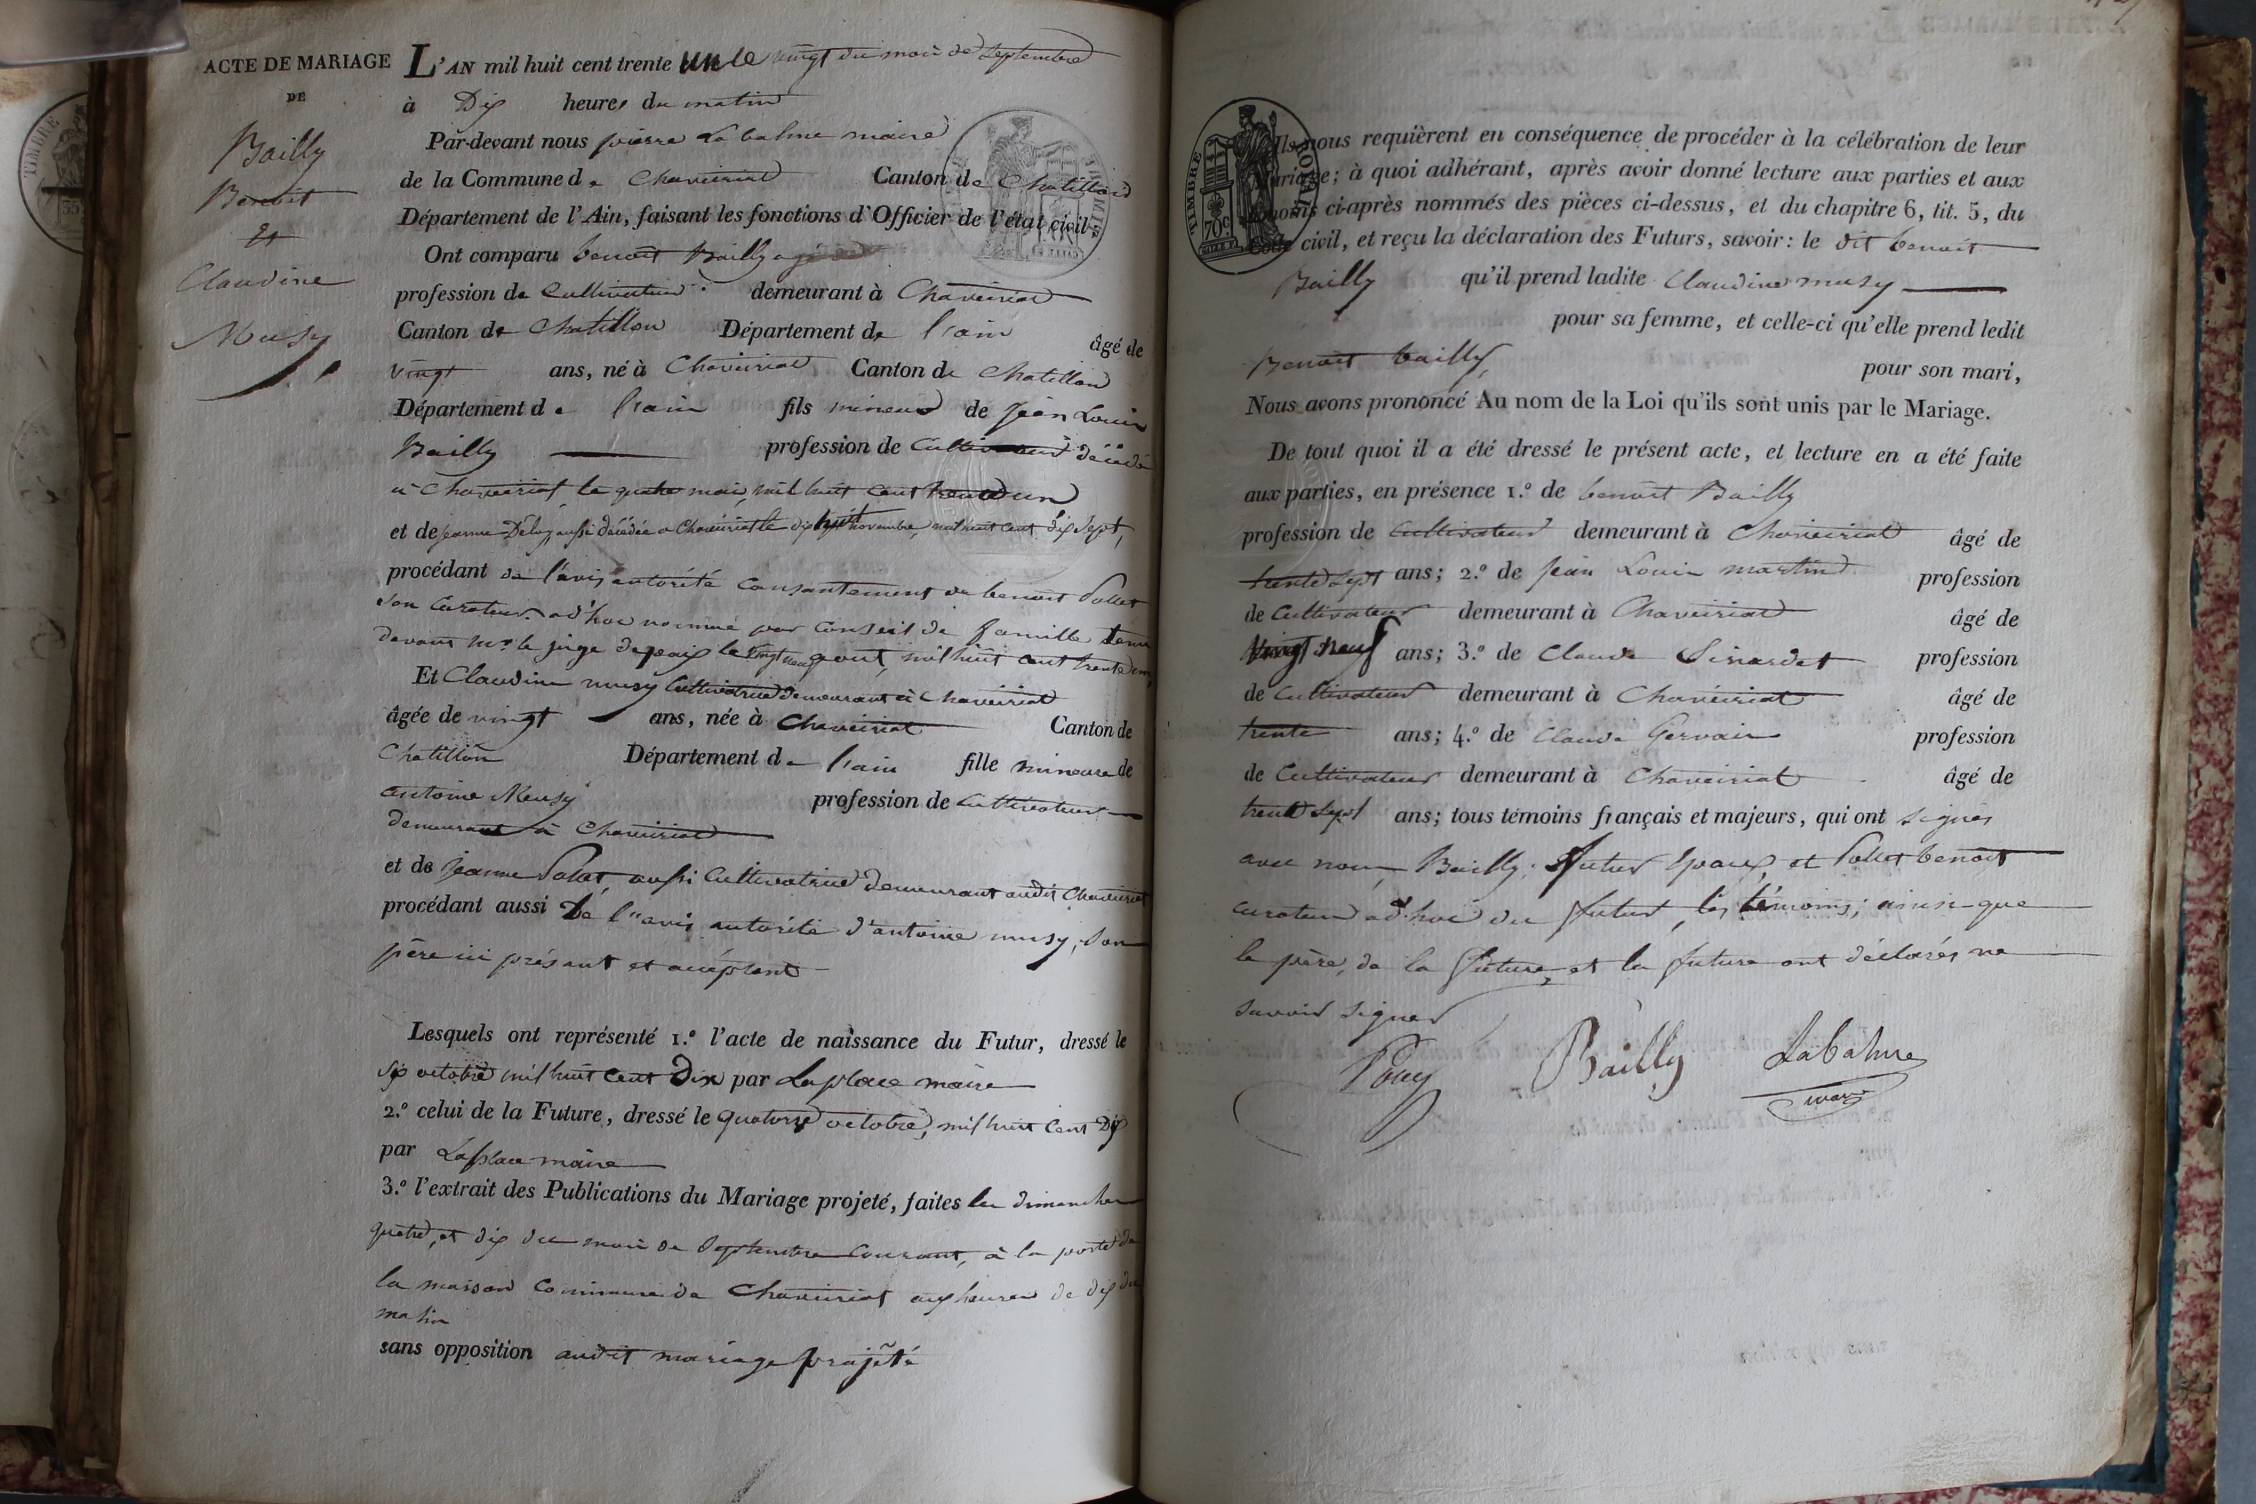 ACTE DE MARIAGE
DE
Bailly
Benoit
Et
Claudine
Musy
L'AN mil huit cent trente un le vingt du mois de Septembre
à Dix heures du matin
Par-devant nous pierre Labahue maire
de la Commune de Chaveiriat Canton de Chatillon
Département de l'Ain, faisant les fonctions d'Officier de l'état civil
Ont comparu benoit Bailly agé
profession de Cultivateur demeurant à Chaveiriat
Canton de Chatillon Département de l'ain âgé de
vingt ans, né à Chaveiriat Canton de Chatillon
Département de l'ain fils mineur de Jean Louis
Bailly profession de Cultivateur décédé
à Chaveiriat le quatre mai, mil huit cent trente un
et de jeanne aussi décédée à Chaveiriat le dix huit novembre, mil huit cent dix sept,
procédant de l'avis autorité consantement de benoit Pollet
son Curateur ad'hoc nommé par conseil de famille tenu
devant Mr le juge de paix le vingt neuf aout, mil huit cent trente un,
Et Claudine musy Cultivatrice demeurant à Chaveiriat
âgée de vingt ans, née à Chaveiriat Canton de
Chatillon Département de l'ain fille mineure de
antoine Musy profession de Cultivateur
demeurant à Chaveiriat
et de jeanne aussi Cultivatrice demeurant audit Chaveiriat
procédant aussi De l'avis autorité d'antoine musy, son
père ici présent et acceptant
Lesquels ont représenté 1.º l'acte de naissance du Futur, dressé le
six octobre mil huit cent Dix par Laplace maire
2.º celui de la Future, dressé le quatorze octobre, mil huit cent Dix
par Laplace maire
3.º l'extrait des Publications du Mariage projeté, faites les dimanches
quatre, et dix du mois de Septembre courant, à la porte de
la maison commune de Chaveiriat aux heures de dix du
matin
sans opposition audit mariage projété
TIMBRE ROYAL
70c
Ils nous requièrent en conséquence de procéder à la célébration de leur
Mariage; à quoi adhérant, après avoir donné lecture aux parties et aux
témoins ci-après nommés des pièces ci-dessus, et du chapitre 6, tit. 5, du
Code civil, et reçu la déclaration des Futurs, savoir: le dit benoit
Bailly qu'il prend ladite Claudine musy
pour sa femme, et celle-ci qu'elle prend ledit
Benoit bailly pour son mari,
Nous avons prononcé Au nom de la Loi qu'ils sont unis par le Mariage.
De tout quoi il a été dressé le présent acte, et lecture en a été faite
aux parties, en présence 1.º de benoit Bailly
profession de Cultivateur demeurant à Chaveiriat âgé de
trente sept ans; 2.º de Jean Louis martin profession
de Cultivateur demeurant à Chaveiriat âgé de
vingt neuf ans; 3.º de Claude Sirardet profession
de Cultivateur demeurant à Chaveiriat âgé de
trente ans; 4.º de Claude Gervais profession
de Cultivateur demeurant à Chaveiriat âgé de
trente sept ans; tous témoins français et majeurs, qui ont signés
avec nous, Bailly futur Epoux, et Pollet benoit
curateur ad'hoc du futur, les témoins, ainsi que
le père, de la future, et la future ont déclarés ne
savoir signer
Bailly
Labahue
maire